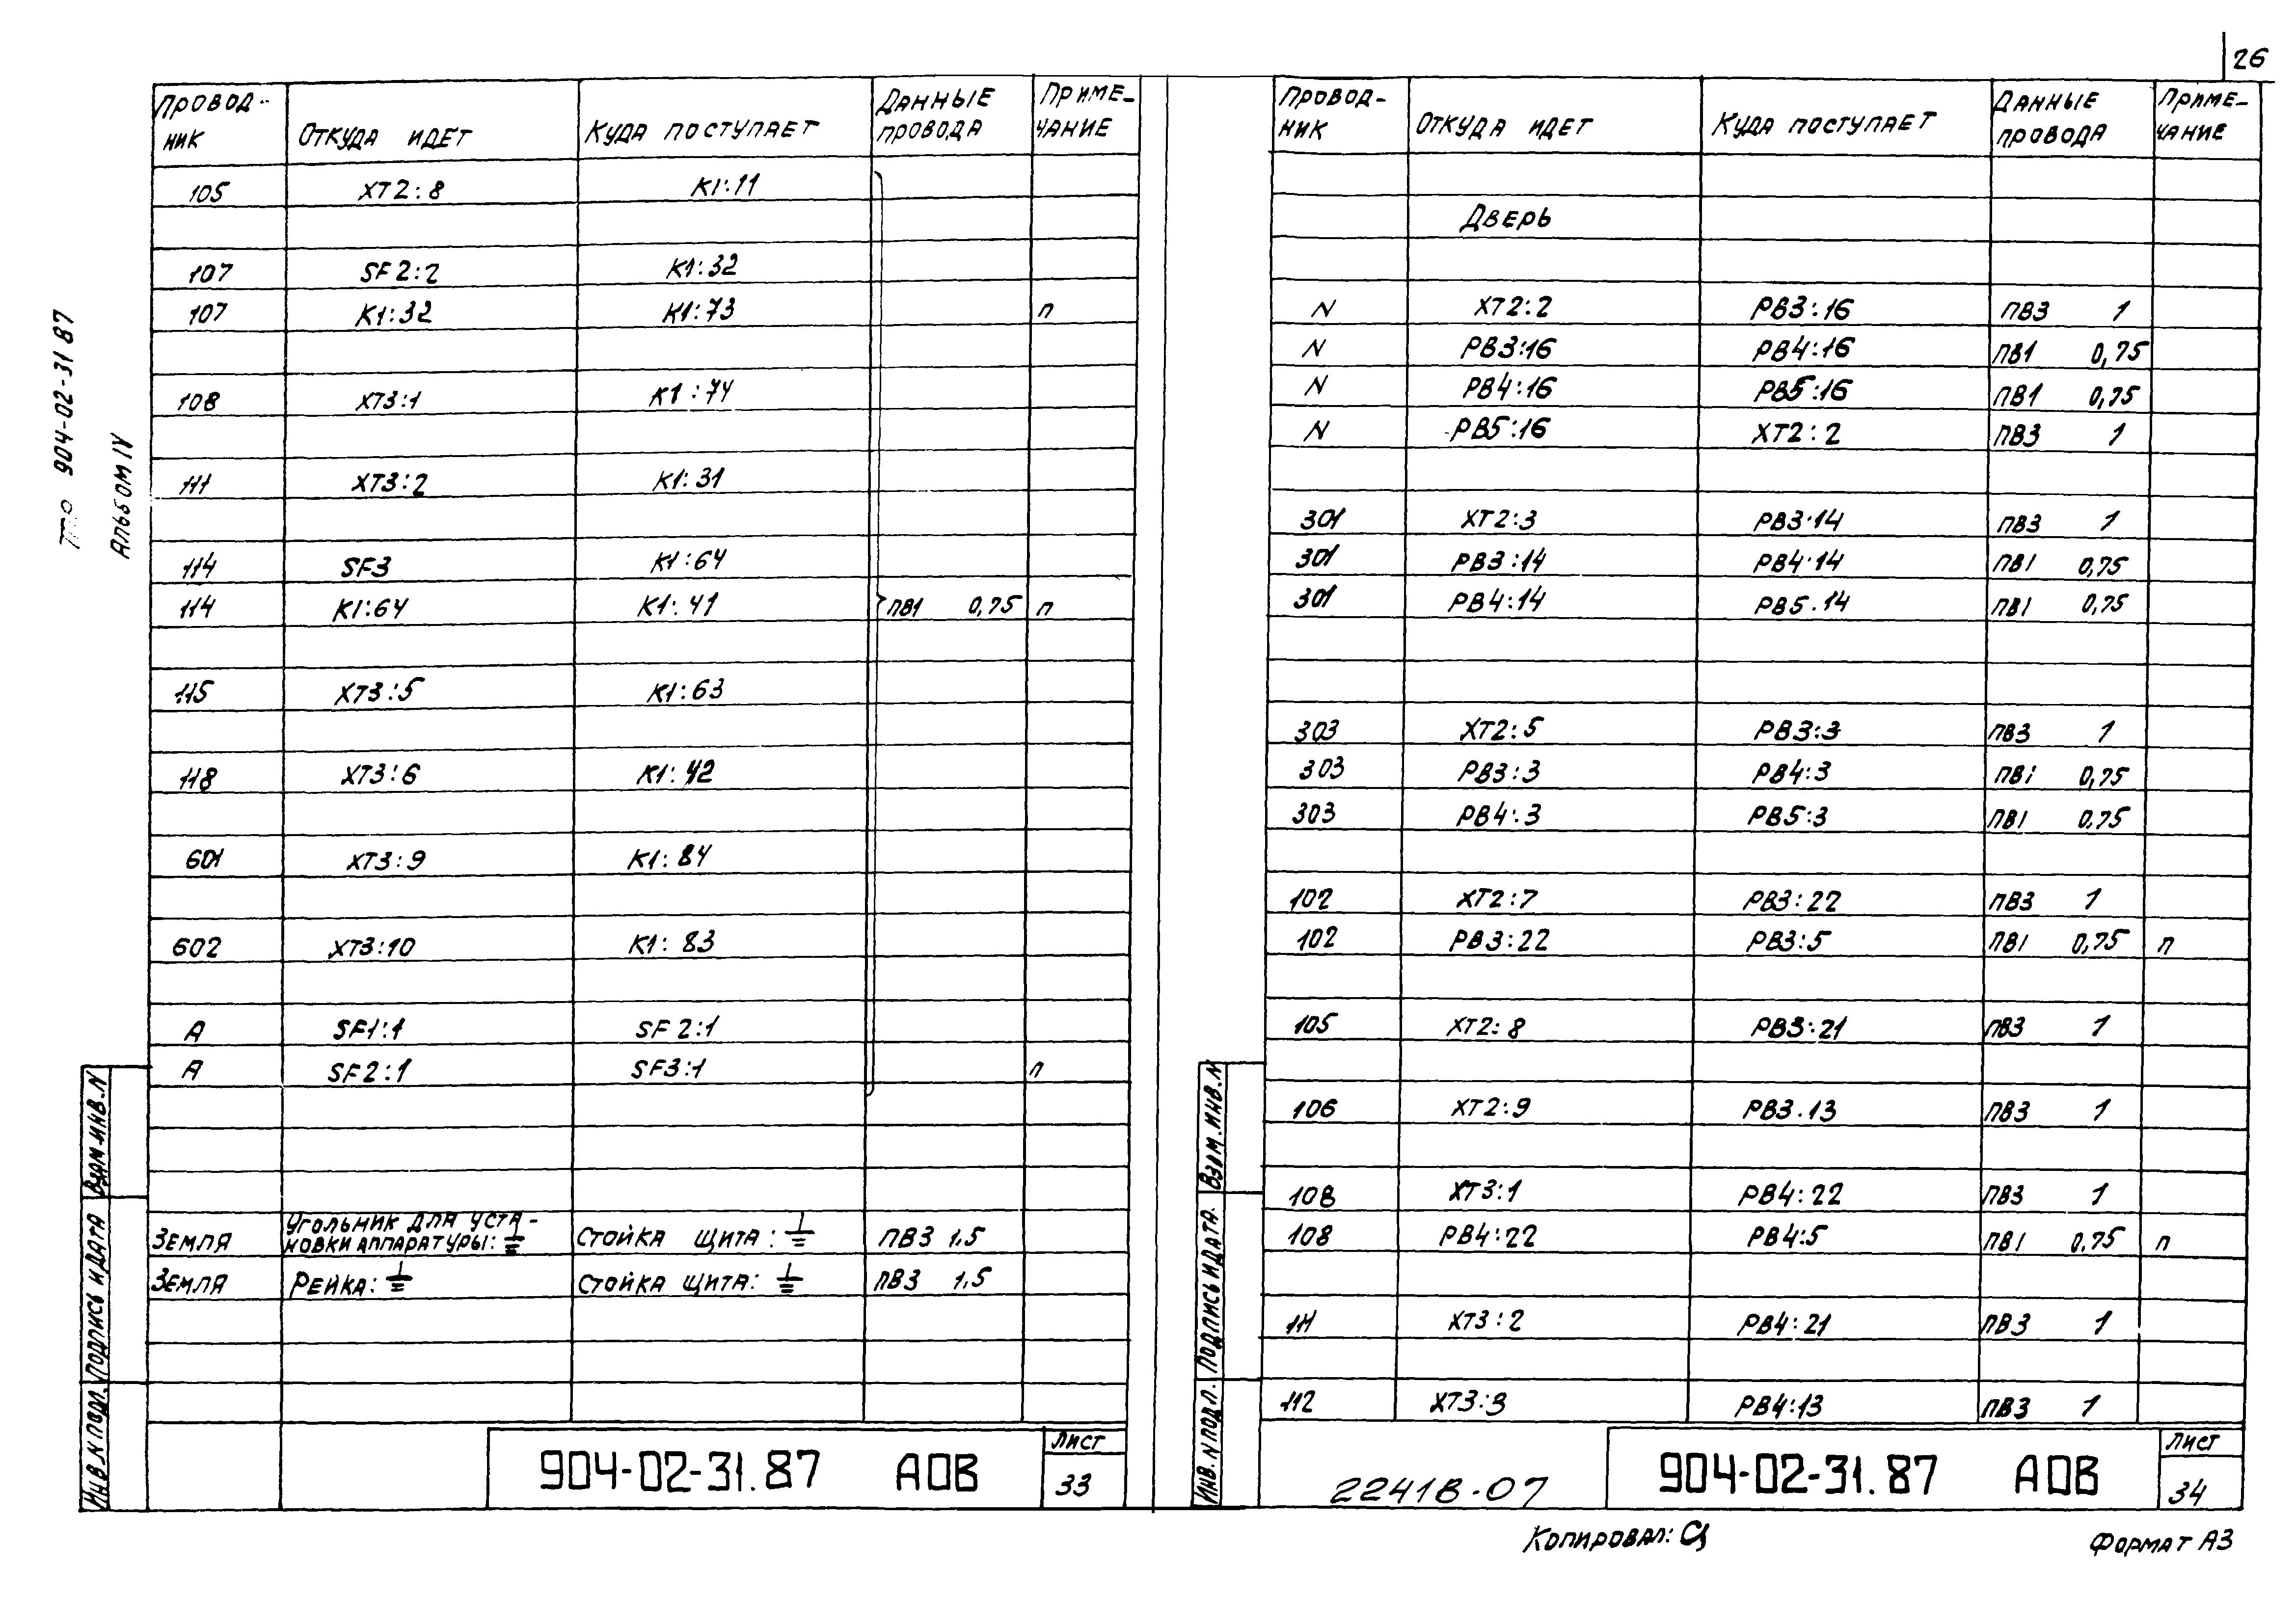 26
ТПР 904-02-31 87
Альбом IV
Провод- Откуда идет Куда поступает Данные Приме-
ник провода чание
105 XT2:8 K1:11
107 SF2:2 K1:32
107 K1:32 K1:73 п
108 XT3:1 K1:74
111 XT3:2 K1:31
114 SF3 K1:64
114 K1:64 K1:41 ПВ1 0,75 п
115 XT3:5 K1:63
118 XT3:6 K1:42
601 XT3:9 K1:84
602 XT3:10 K1:83
A SF1:1 SF2:1
A SF2:1 SF3:1 п
Угольник для уста-
Земля новки аппаратуры:⏚ Стойка щита:⏚ ПВ3 1.5
Земля Рейка:⏚ Стойка щита:⏚ ПВ3 1,5
904-02-31.87 АОВ
Лист
33
Взам.инв.N
Подпись и дата
Инв.N подл.
Провод- Откуда идет Куда поступает Данные Приме-
ник провода чание
Дверь
N XT2:2 PB3:16 ПВ3 1
N PB3:16 PB4:16 ПВ1 0,75
N PB4:16 PB5:16 ПВ1 0,75
N PB5:16 XT2:2 ПВ3 1
301 XT2:3 PB3·14 ПВ3 1
301 PB3:14 PB4·14 ПВ1 0,75
301 PB4:14 PB5.14 ПВ1 0,75
303 XT2:5 PB3:3 ПВ3 1
303 PB3:3 PB4:3 ПВ1 0,75
303 PB4:3 PB5:3 ПВ1 0,75
102 XT2:7 PB3:22 ПВ3 1
102 PB3:22 PB3:5 ПВ1 0,75 п
105 XT2:8 PB3:21 ПВ3 1
106 XT2:9 PB3.13 ПВ3 1
108 XT3:1 PB4:22 ПВ3 1
108 PB4:22 PB4:5 ПВ1 0,75 п
111 XT3:2 PB4:21 ПВ3 1
112 XT3:3 PB4:13 ПВ3 1
904-02-31.87 АОВ
Лист
34
Взам.инв.N
Подпись и дата.
Инв.N подл.
22418-07
Копировал:
Формат А3